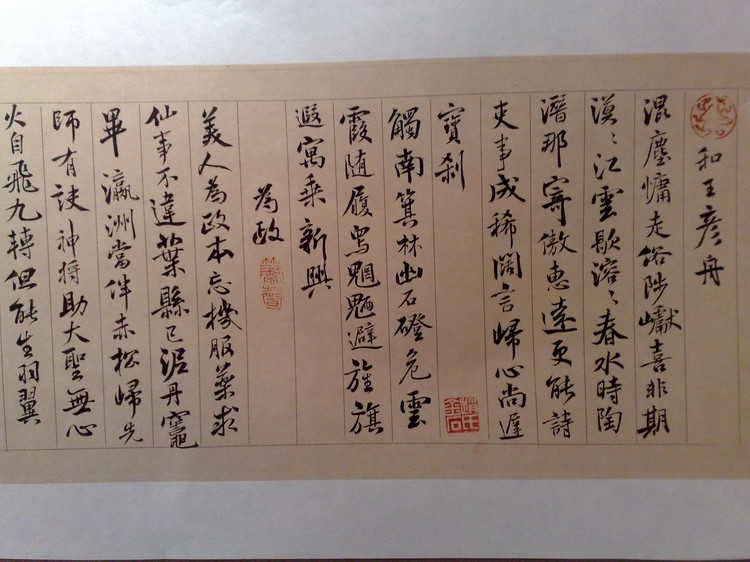 和王彥舟
混塵慵走俗陟巘喜非期
漠〻江雲歇溶〻春水時陶
潛那寄傲惠遠更能詩
吏事成稀闊言歸心尚遲
寶剎
觸南箕林幽石磴危雲
霞隨履舄魍魎避旌旗
遐寓乘新興
為政
美人為政本忘機服藥求
仙事不違葉縣已泥丹竈
畢瀛洲當伴赤松歸先
師有訣神將助大聖無心
火自飛九轉但能生羽翼